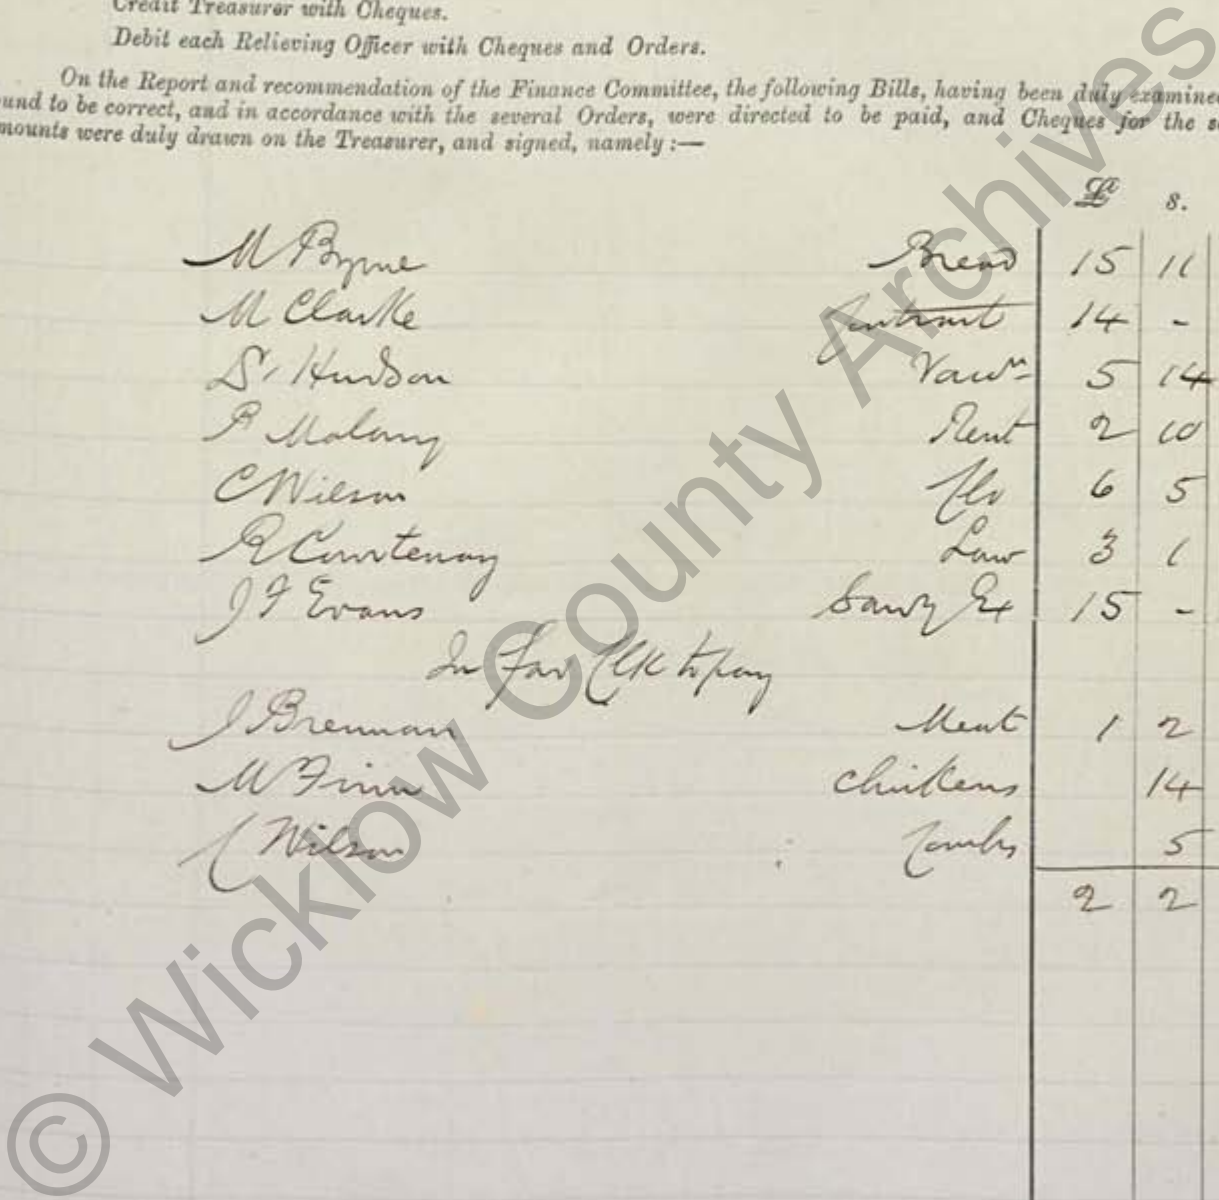 Credit Treasurer with Cheques.
Debit each Relieving Officer with Cheques and Orders.
On the Report and recommendation of the Finance Committee, the following Bills, having been duly examined
und to be correct, and in accordance with the several Orders, were directed to be paid, and Cheques for the s
mounts were duly drawn on the Treasurer, and signed, namely :—
£ s.
M Byrne Bread 15 11
M Clarke Contract 14 -
S. Hudson Vaccn 5 14
P Molony Rent 2 10
C Wilson 6 5
R Courtenay Law 3 1
J F Evans Sanry Ex 15 -
In Fav Clk to pay
J Brennan Meat 1 2
M Finn Chickens 14
C Wilson Combs 5
2 2
© Wicklow County Archives